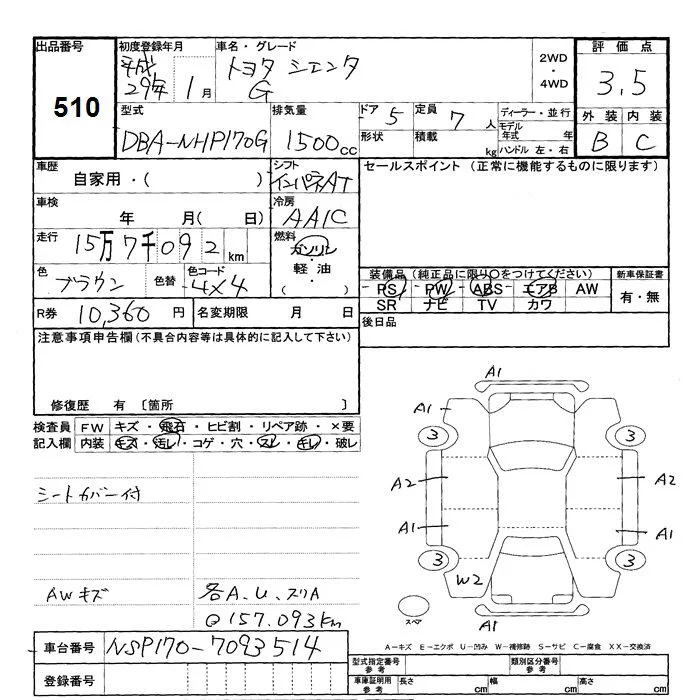 出品番号 510
初度登録年月 平成29年 1月
車名・グレード トヨタ シエンタ G
2WD ・ 4WD
評価点 3.5
外装 B 内装 C
型式 DBA-NHP170G
排気量 1500cc
ドア 5 定員 7 人
形状 積載 kg
ディーラー・並行
モデル年式 年
ハンドル 左・右
車歴 自家用・( )
シフト インパネAT
セールスポイント (正常に機能するものに限ります)
車検 年 月( 日)
冷房 AAIC
走行 15万7千092km
燃料 ガソリン・軽油・( )
色 ブラウン 色替 色コード 4X4
装備品 (純正品に限り○をつけてください)
PS PW ABS エアB AW
SR ナビ TV カワ
新車保証書 有・無
R券 10,360円 名変期限 月 日
後日品
注意事項申告欄 (不具合内容等は具体的に記入して下さい)
修復歴 有 〔箇所 〕
検査員記入欄 FW キズ・飛石・ヒビ割・リペア跡・×要
内装 キズ・汚レ・コゲ・穴・スレ・キレ・破レ
シートカバー付
AWキズ 各A.U.スリA
@157.093km
A1
A1
3 3
A2 A2
A1 A1
3 3
W2
スペア A1
車台番号 NSP170-7093514
登録番号
A-キズ E-エクボ U-凹み W-補修跡 S-サビ C-腐食 XX-交換済
型式指定番号 参考 類別区分番号 参考
車庫証明用 参考 長さ cm 幅 cm 高さ cm